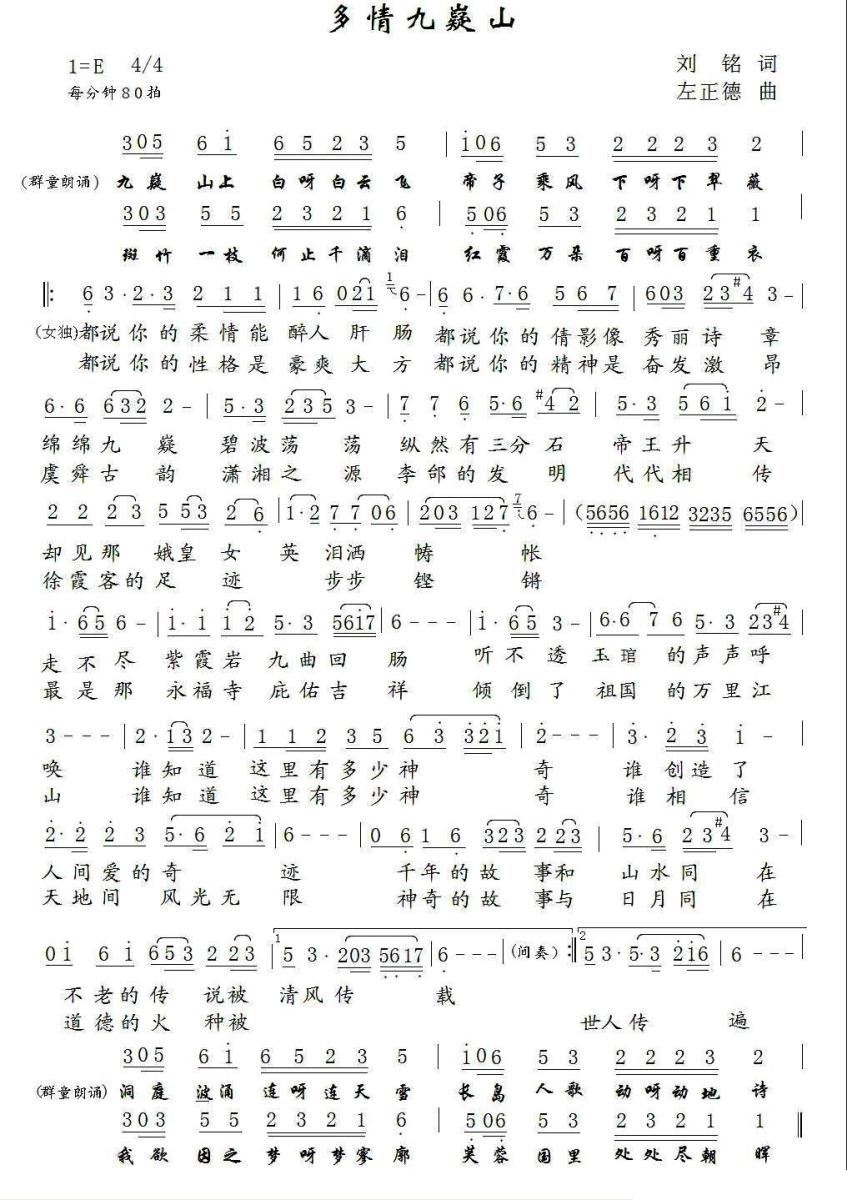 多情九嶷山
1=E 4/4
刘铭 词
每分钟80拍
左正德 曲
3 0 5 6 1 6 5 2 3 5 | 1 0 6 5 3 2 2 2 3 2 |
(群童朗诵) 九嶷 山上 白呀白云飞 帝子 乘风 下呀下翠薇
3 0 3 5 5 2 3 2 1 6 | 5 0 6 5 3 2 3 2 1 1 |
斑竹 一枝 何止千滴泪 红霞 万朵 百呀百重衣
‖: 6 3 · 2 · 3 2 1 1 | 1 6 0 2 1 1 6 - | 6 6 · 7 · 6 5 6 7 | 6 0 3 2 3 #4 3 - |
(女独) 都说你的柔情能醉人肝肠 都说你的倩影像秀丽诗章
都说你的性格是豪爽大方 都说你的精神是奋发激昂
6 · 6 6 3 2 2 - | 5 · 3 2 3 5 3 - | 7 7 6 5 · 6 #4 2 | 5 · 3 5 6 1 2 - |
绵绵九嶷 碧波荡荡 纵然有三分石 帝王升天
虞舜古韵 潇湘之源 李郃的发明 代代相传
2 2 2 3 5 5 3 2 6 | 1 · 2 7 7 0 6 | 2 0 3 1 2 7 7 6 - | (5656 1612 3235 6556) |
却见那 娥皇女英泪洒帱帐
徐霞客的足迹 步步铿锵
1 · 6 5 6 - | 1 · 1 1 2 5 · 3 5 6 1 7 | 6 - - - | 1 · 6 5 3 - | 6 · 6 7 6 5 · 3 2 3 #4 |
走不尽 紫霞岩九曲回肠 听不透玉琯的声声呼
最是那 永福寺庇佑吉祥 倾倒了祖国的万里江
3 - - - | 2 · 1 3 2 - | 1 1 2 3 5 6 3 3 2 1 | 2 - - - | 3 · 2 3 1 - |
唤 谁知道 这里有多少神奇 谁创造了
山 谁知道 这里有多少神奇 谁相信
2 · 2 2 3 5 · 6 2 1 | 6 - - - | 0 6 1 6 3 2 3 2 2 3 | 5 · 6 2 3 #4 3 - |
人间爱的奇迹 千年的故事和 山水同在
天地间 风光无限 神奇的故事与 日月同在
0 1 6 1 6 5 3 2 2 3 | 1 5 3 · 2 0 3 5 6 1 7 | 6 - - - (间奏) :‖ 2 5 3 · 5 · 3 2 1 6 | 6 - - - |
不老的传说被 清风传载
道德的火种被 世人传遍
3 0 5 6 1 6 5 2 3 5 | 1 0 6 5 3 2 2 2 3 2
(群童朗诵) 洞庭 波涌 连呀连天雪 长岛 人歌 动呀动地诗
3 0 3 5 5 2 3 2 1 6 | 5 0 6 5 3 2 3 2 1 1 ‖
我欲 因之 梦呀梦寥廓 芙蓉 国里 处处尽朝晖